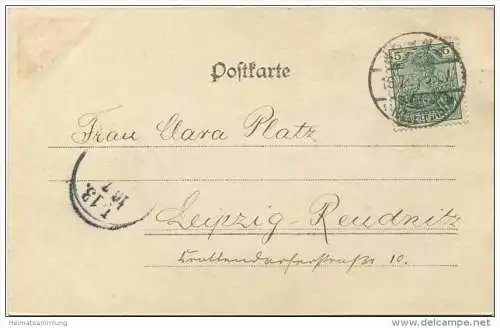 Postkarte
5 5
Frau Clara Platz
13.
Leipzig-Reudnitz
Crottendorferstraße 10.
Heimatsammlung
www.delcampe.net